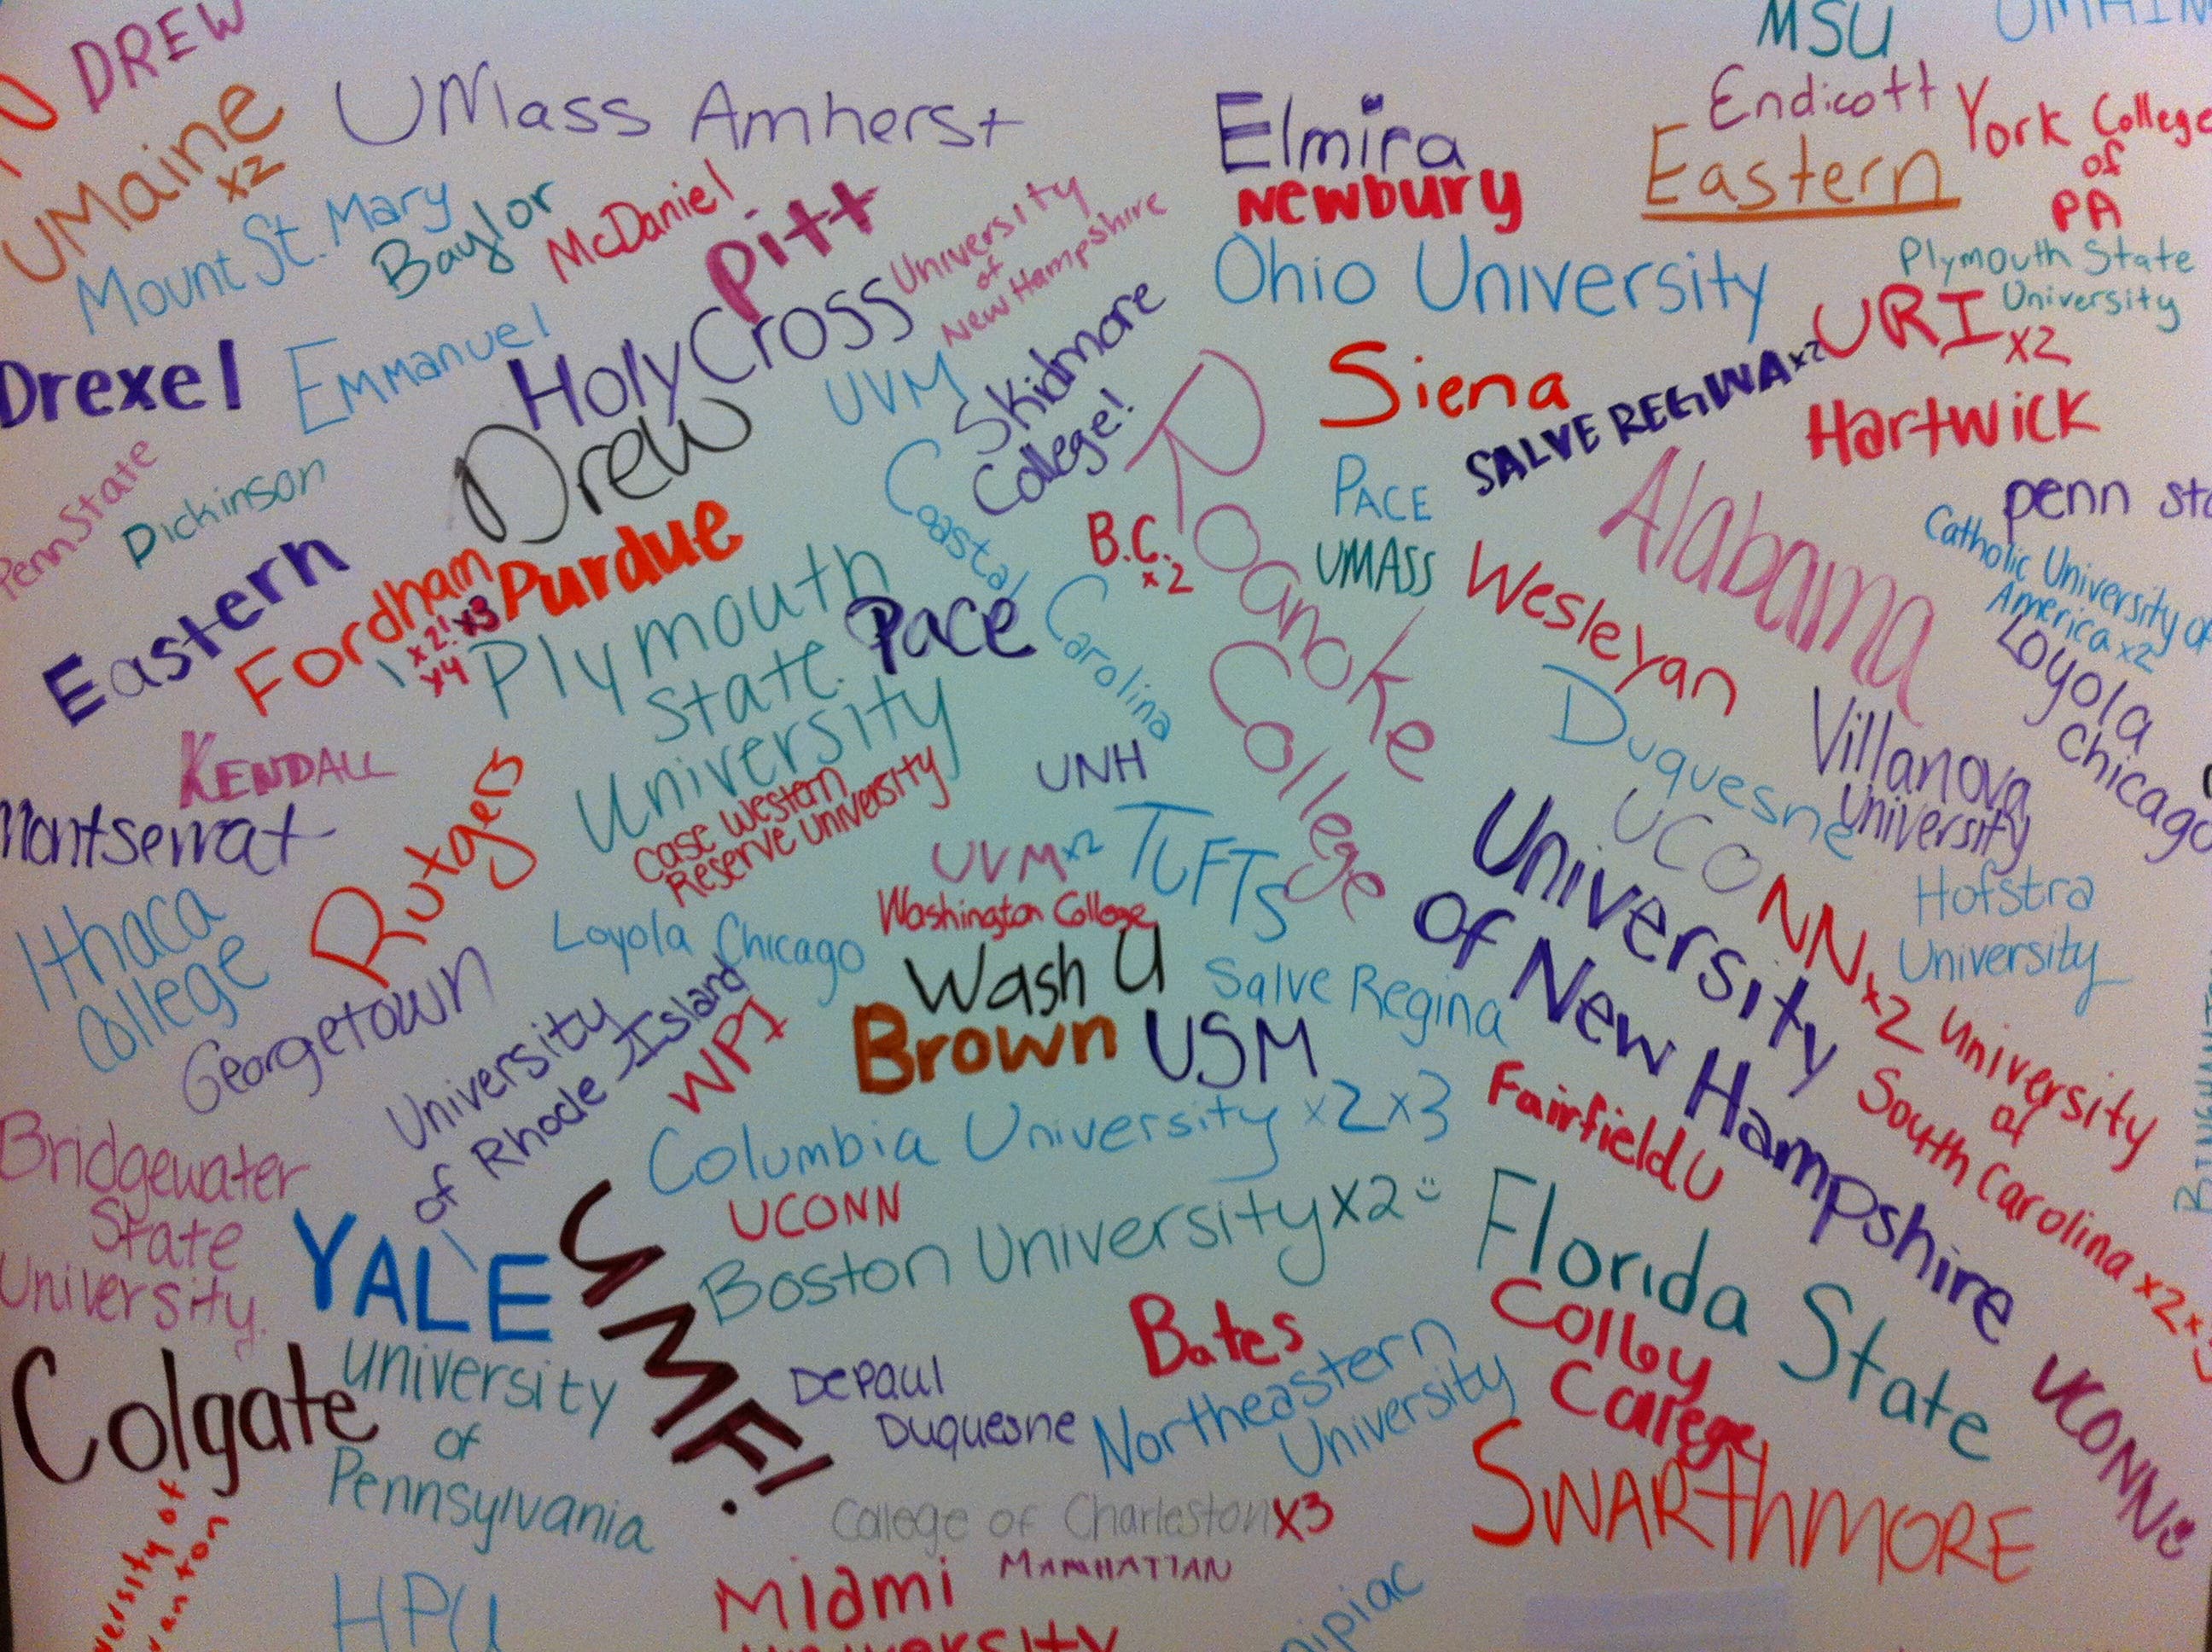 DREW
MSU
UMaine
x2
UMass Amherst
Elmira
Endicott
York College
of
PA
Newbury
Eastern
Mount St. Mary
Baylor
McDaniel
Pitt
University
of
New Hampshire
Ohio University
Plymouth State
University
Drexel
Emmanuel
Holy Cross
UVM
Skidmore
College!
Siena
SALVE REGINA x2
URI x2
Hartwick
Penn State
Dickinson
Drew
Coastal
Carolina
B.C.
x2
Roanoke
College
PACE
UMASS
Wesleyan
Alabama
penn
Catholic University of
America x2
Eastern
Fordham
x2! x3
x4
Purdue
Plymouth
State
University
Pace
Duquesne
Villanova
University
Loyola
Chicago
KENDALL
Montserrat
Rutgers
Case Western
Reserve University
UNH
UVM x2
TUFTS
UCONN x2
Hofstra
University
Ithaca
College
Georgetown
Loyola Chicago
Washington College
Wash U
Salve Regina
University
of New Hampshire
University
of Rhode Island
WPI
Brown
USM
University
of
South Carolina x2
Fairfield U
Bridgewater
State
University
Columbia University x2 x3
UCONN
Boston University x2
YALE
UMF!
Florida State
Colgate
University
of
Pennsylvania
DePaul
Duquesne
Bates
Northeastern
University
Colby
College
UCONN
SWARThMORE
College of Charleston x3
MANHATTAN
Miami
HPU